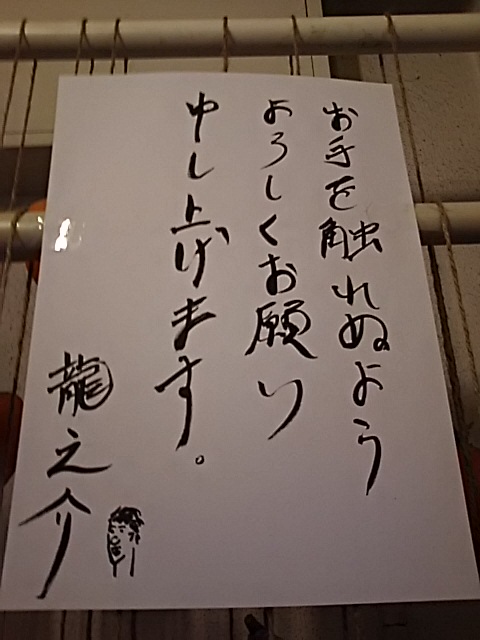 お手を触れぬよう
よろしくお願い
申し上げます。
龍之介